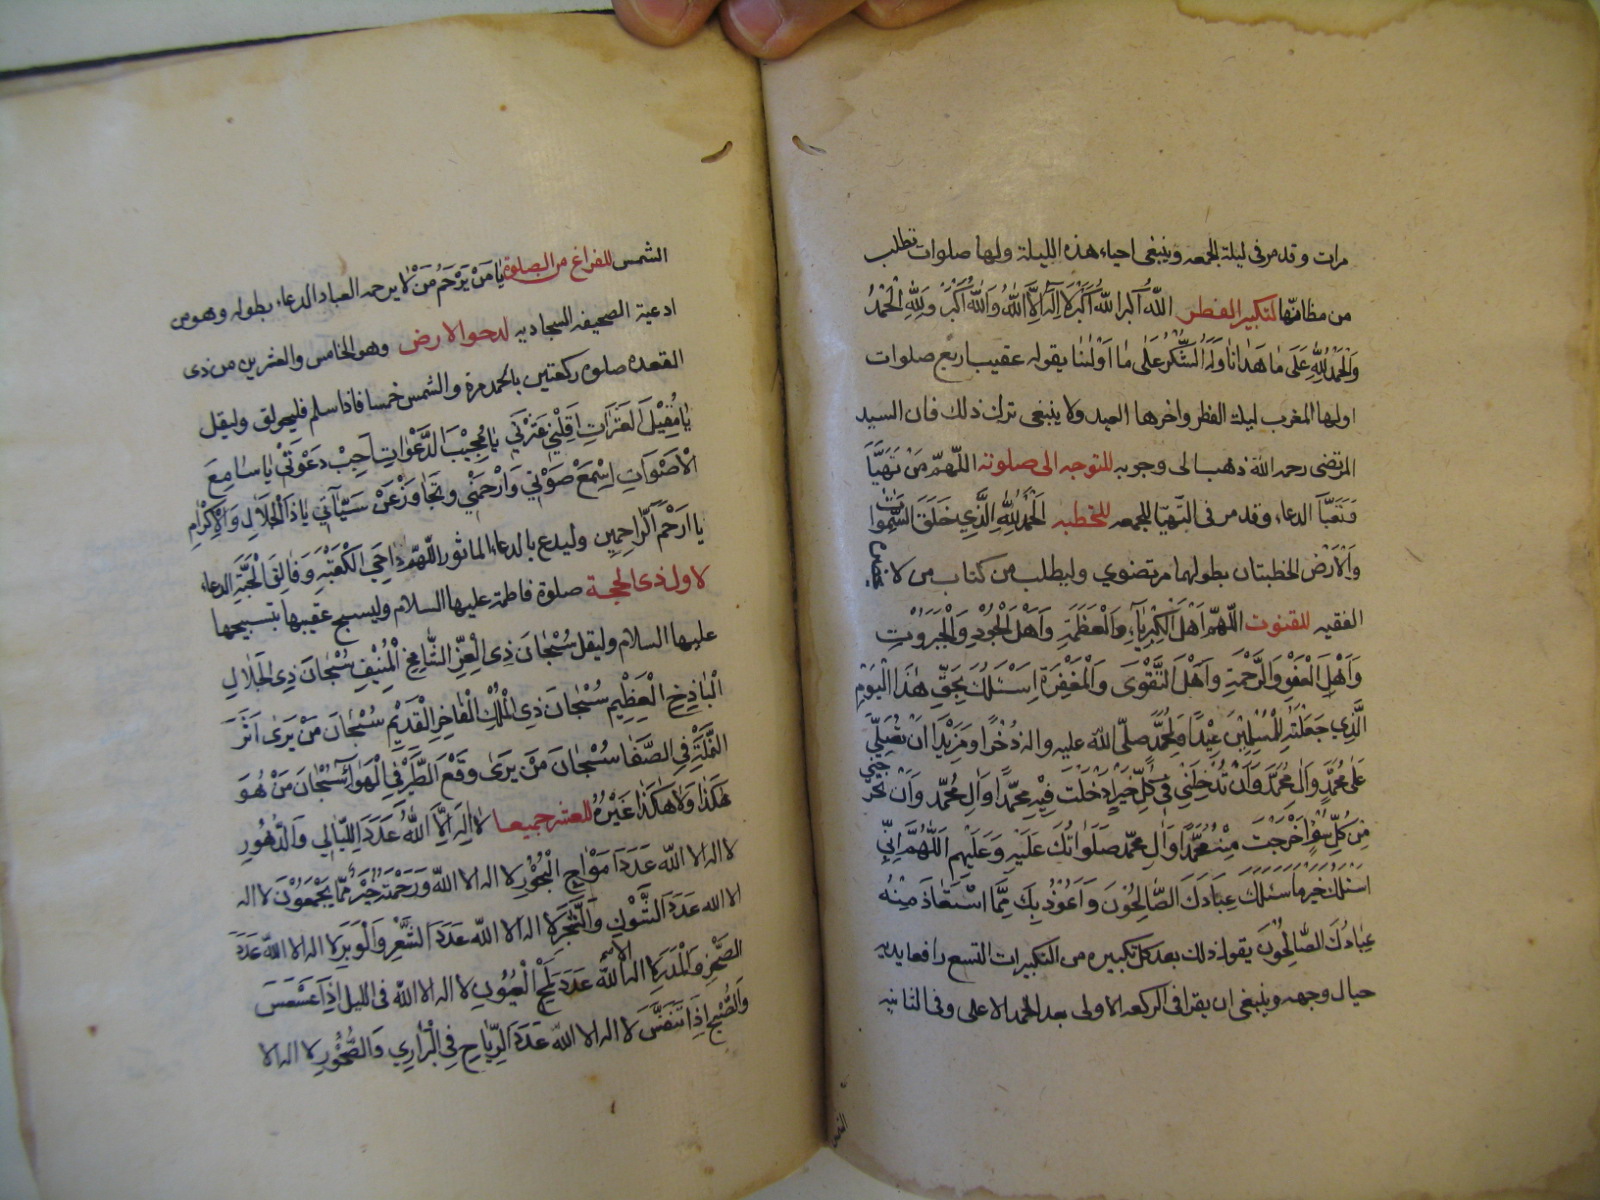 مرات وقد مر فى ليلة الجمعه وينبغى احياء هذه الليلة ولها صلوات تطلب
من مظانّها لتكبير الفطر اللّٰه اكبر اللّٰه اَكْبَرُ لَا اِلٰهَ اِلَّا اللّٰهُ وَاللّٰهُ اَكْبَرُ وَلِلّٰهِ الْحَمْدُ
وَالْحَمْدُ لِلّٰهِ عَلَى مٰا هَدٰانٰا وَلَهُ الشُّكْرُ عَلٰى مٰا اَوْلٰنٰا يقوله عقيب اربع صلوات
اولها المغرب ليلة الفطر واخرها العيد ولا ينبغى ترك ذلك فان السيد
المرتضى رحمه اللّٰه ذهب الى وجوبه للتوجه الى صلوته اللّهمّ مَنْ تَهَيَّأَ
وَتَعَبَّأَ الدعاء وقد مر فى التهيّا للجمعه للخطبه اَلْحَمْدُ لِلّٰهِ الَّذِي خَلَقَ السَّمٰوٰاتِ
وَالْاَرْضَ الخطبتان بطولهما مرتضوي وليطلب من كتاب من لا يحضره
الفقيه للقنوت اللّٰهمّ اَهْلَ الْكِبْرِيٰآءِ وَالْعَظَمَةِ وَاَهْلَ الْجُودِ وَالْجَبَرُوْتِ
وَاَهْلَ الْعَفْوِ وَالرَّحْمَةِ وَاَهْلَ التَّقْوٰى وَالْمَغْفِرَةِ اَسْئَلُكَ بِحَقِّ هٰذَا الْيَوْمِ
الَّذِي جَعَلْتَهُ لِلْمُسْلِمِيْنَ عِيْدًا وَلِمُحَمَّدٍ صلّى اللّٰه عليه واله ذُخْرًا وَمَزِيْدًا اَنْ تُصَلِّيَ
عَلٰى مُحَمَّدٍ وَاٰلِ مُحَمَّدٍ وَاَنْ تُدْخِلَنِيْ فِي كُلِّ خَيْرٍ اَدْخَلْتَ فِيْهِ مُحَمَّدًا وَاٰلَ مُحَمَّدٍ وَاَنْ تُخْرِجَنِي
مِنْ كُلِّ سُوْءٍ اَخْرَجْتَ مِنْهُ مُحَمَّدًا وَاٰلَ مُحَمَّدٍ صَلَوٰاتُكَ عَلَيْهِ وَعَلَيْهِمْ اَللّٰهُمَّ اِنِّي
اَسْئَلُكَ خَيْرَ مٰا سَئَلَكَ عِبٰادُكَ الصّٰالِحُونَ وَاَعُوْذُ بِكَ مِمَّا اسْتَعٰاذَ مِنْهُ
عِبٰادُكَ الصّٰالِحُوْنَ يقول ذلك بعد كل تكبيره من التكبيرات التسع رافعا يديه
حيال وجهه وينبغى ان يقرا فى الركعه الاولى بعد الحمد الاعلى وفى الثانيه
الشمس للفراغ من الصلوة يٰا مَنْ يَرْحَمُ مَنْ لٰا يرحمه العباد الدعاء بطوله وهو من
ادعية الصحيفه السجاديه لدحو الارض وهو الخامس والعشرين من ذى
القعده صلوه ركعتين بالحمد مرة والشمس خمسا فاذا سلم فليحولق وليقل
يٰا مُقِيْلَ الْعَثَرٰاتِ اَقِلْنِيْ عَثْرَتِي يٰا مُجِيْبَ الدَّعَوٰاتِ اَجِبْ دَعْوَتِيْ يٰا سٰامِعَ
الْاَصْوٰاتِ اِسْمَعْ صَوْتِي وَارْحَمْنِي وَتَجٰاوَزْ عَنْ سَيِّئٰآتِي يٰا ذَا الْجَلٰالِ وَالْاِكْرٰامِ
يا اَرْحَمَ الرّٰاحِمِيْنَ وليدع بالدعاء الماثور اللّٰهمّ دٰاحِيَ الْكَعْبَةِ وَفٰالِقَ الْحَبَّةِ الدعاء
لاول ذى الحجة صلوة فاطمة عليها السلام وليسبح عقيبها بتسبيحها
عليها السلام وليقل سُبْحٰانَ ذِى الْعِزِّ الشّٰامِخِ الْمُنِيْفِ سُبْحٰانَ ذِى الْجَلٰالِ
الْبٰاذِخِ الْعَظِيْمِ سُبْحٰانَ ذِى الْمُلْكِ الْفٰاخِرِ الْقَدِيْمِ سُبْحٰانَ مَنْ يَرٰى اَثَرَ
النَّمْلَةِ فِي الصَّفٰا سُبْحٰانَ مَنْ يَرىٰ وَقْعَ الطَّيْرِ فِي الْهَوٰآءِ سُبْحٰانَ مَنْ هُوَ
هٰكَذٰا وَلٰا هٰكَذٰا غَيْرُهُ للعشر جميعا لٰا اِلٰهَ اِلَّا اللّٰهُ عَدَدَ اللَّيٰالِي وَالدُّهُورِ
لا اله الا اللّٰه عَدَدَ اَمْوٰاجِ الْبُحُوْرِ لا اله الا اللّٰه وَرَحْمَتُهُ خَيْرٌ مِمّٰا يَجْمَعُوْنَ لا اله
الا اللّٰه عَدَدَ الشَّوْكِ وَالشَّجَرِ لا اله الا اللّٰه عَدَدَ الشَّعْرِ وَالْوَبَرِ لا اله الا اللّٰه عَدَدَ
الصَّخْرِ وَالْمَدَرِ لا اله الا اللّٰه عَدَدَ لَمْحِ الْعُيُوْنِ لا اله الا اللّٰه فى الليل اِذٰا عَسْعَسَ
وَالصُّبْحِ اِذٰا تَنَفَّسَ لا اله الا اللّٰه عَدَدَ الرِّيٰاحِ فِي الْبَرٰارِي وَالصُّخُوْرِ لا اله الا